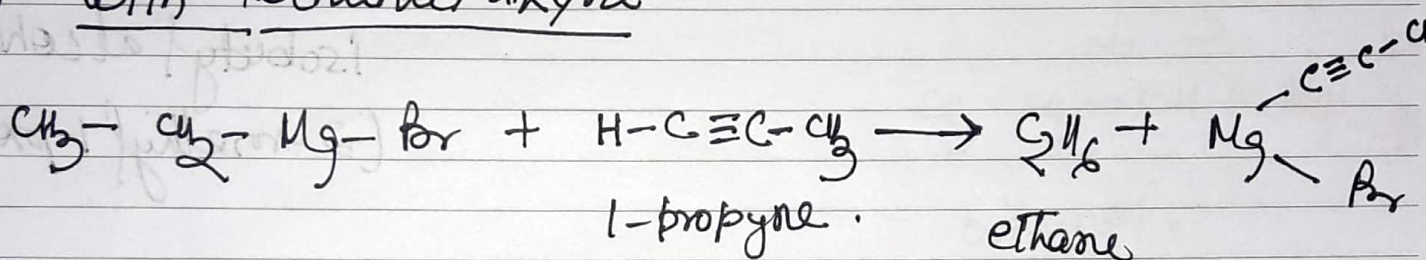 CH3 - CH2 - Mg - Br + H - C ≡ C - CH3 → C2H6 + Mg
C ≡ C - C
Br
1-propyne.
ethane